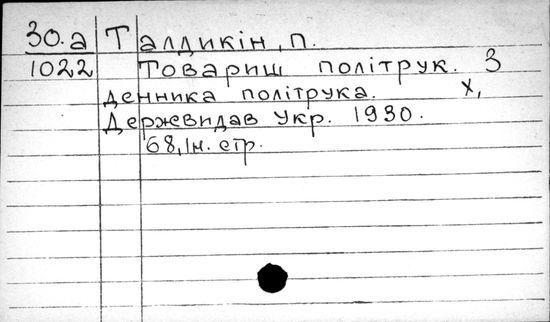 30.а Талдикін, П.
1022 Товариш політрук. З
денника політрука. Х,
Держевидав Укр. 1930.
68,1н. стр.